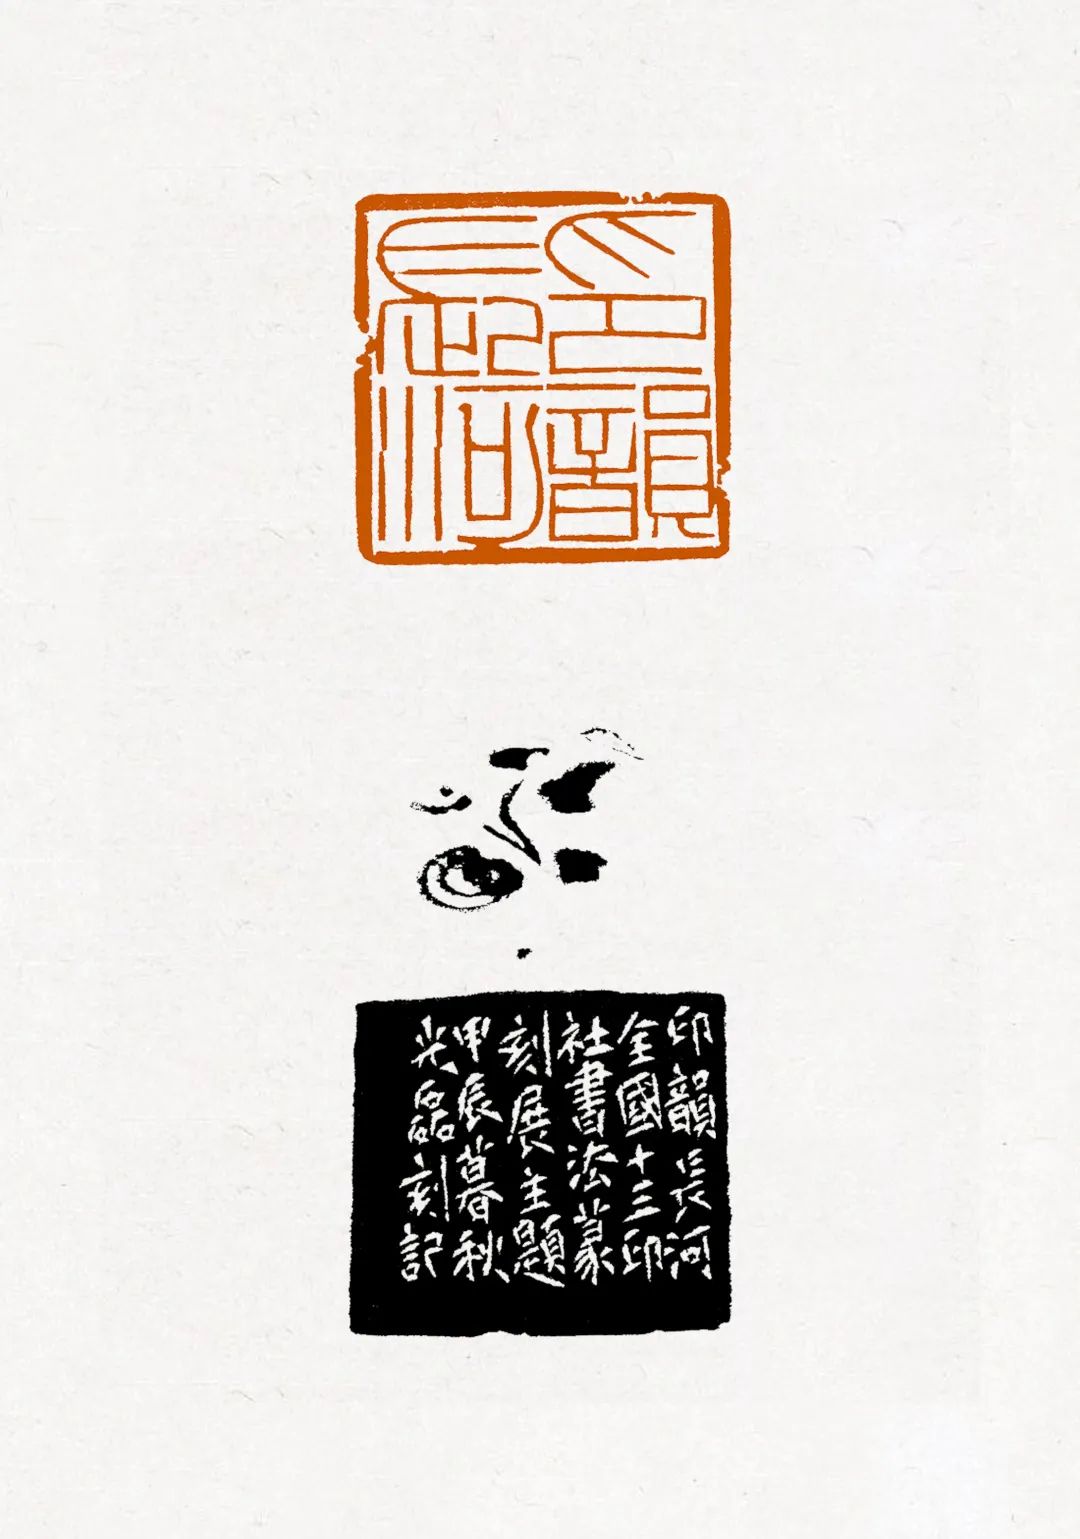 印韻
長河
印韻長河
全國十三印
社書法篆
刻展主題
甲辰暮秋
光磊刻記